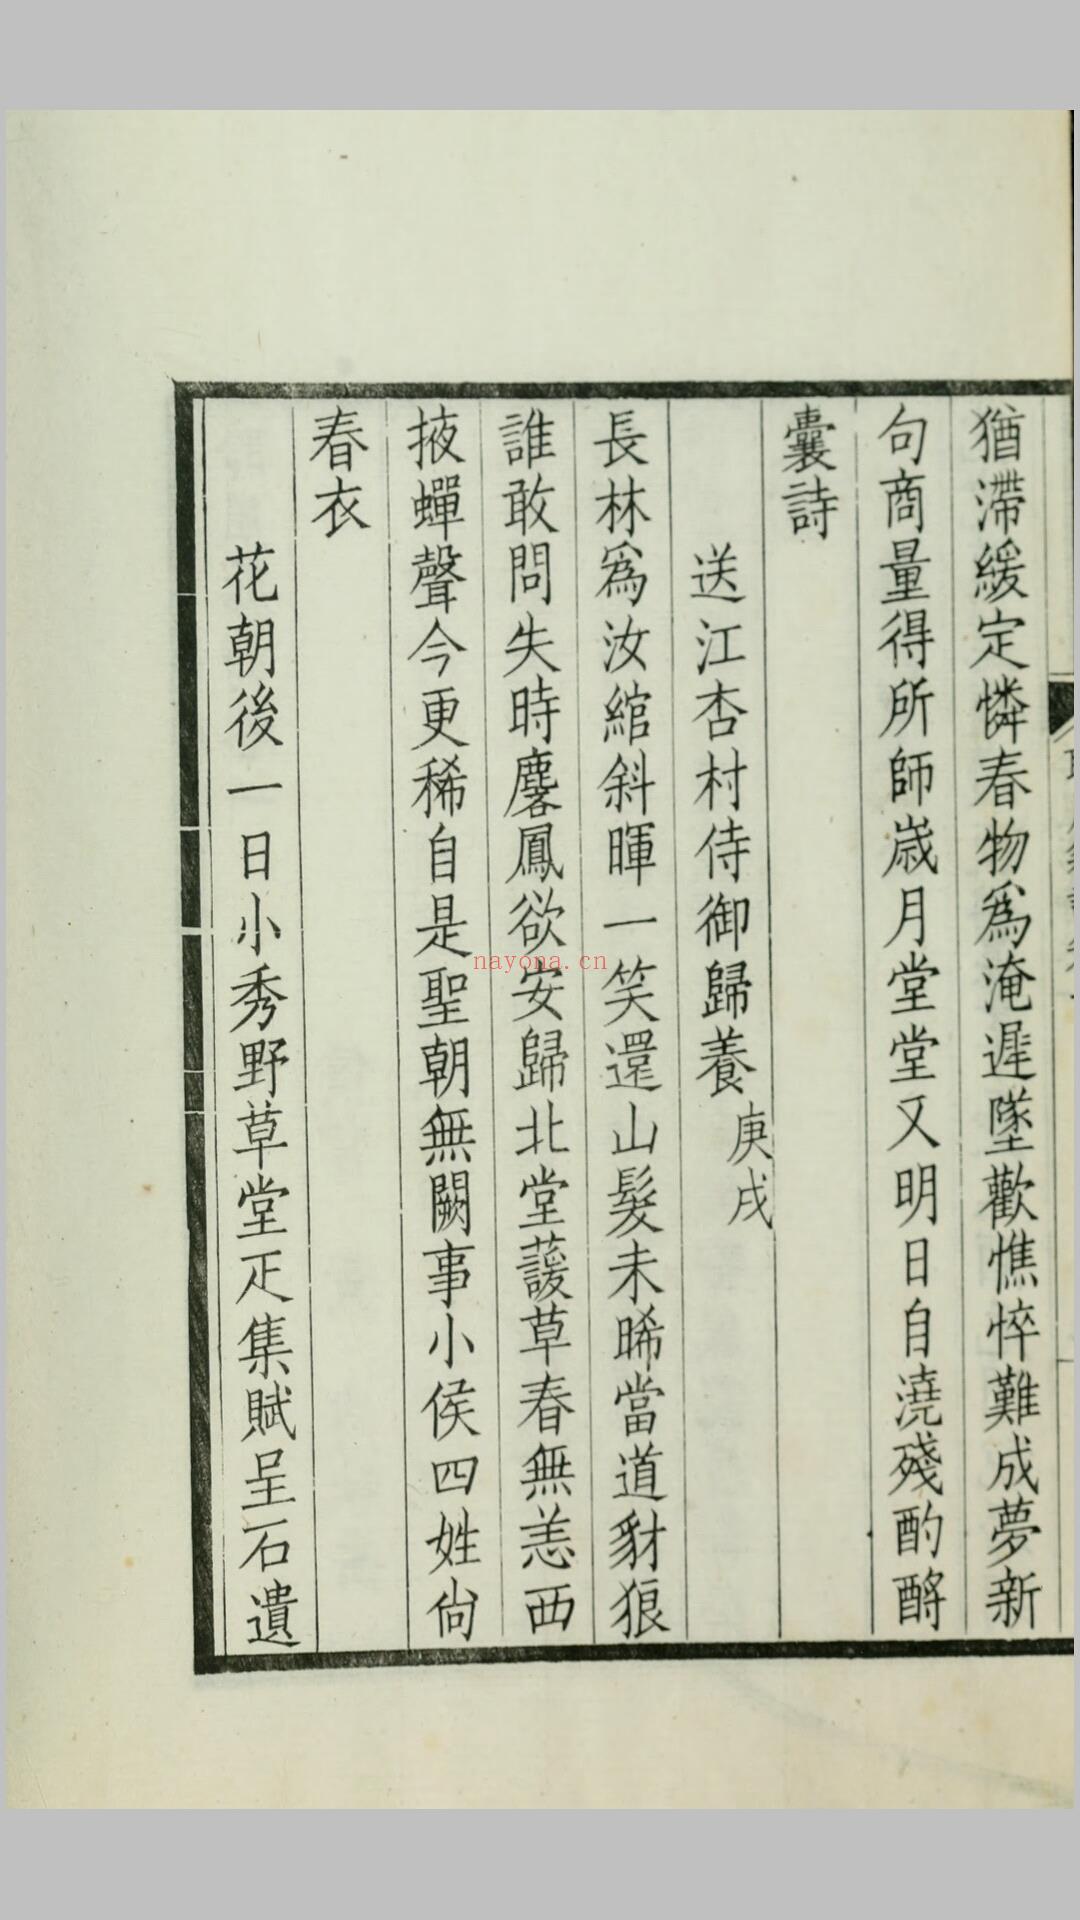 猶滯緩定憐春物爲淹遲墜歡憔悴難成夢新
句商量得所師歲月堂堂又明日自澆殘酌酹
囊詩
送江杏村侍御歸養庚戌
長林爲汝綰斜暉一笑還山髮未晞當道豺狼
誰敢問失時麐鳳欲安歸北堂蘐草春無恙西
掖蟬聲今更稀自是聖朝無闕事小侯四姓尙
春衣
花朝後一日小秀野草堂疋集賦呈石遺
nayona.cn